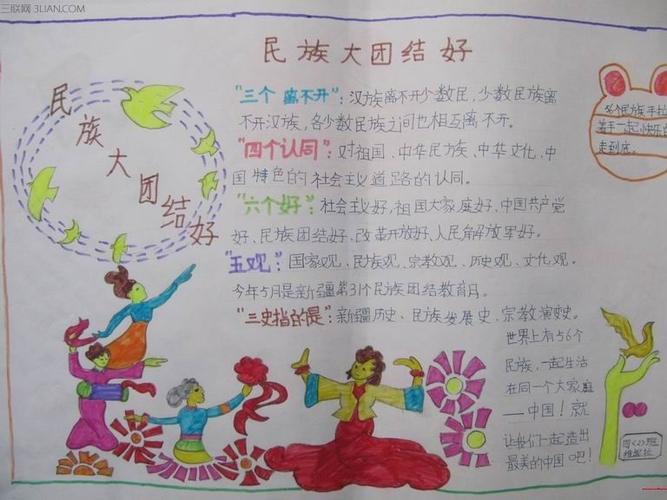 三联网 3LIAN.COM
民族大团结好
民族大团结好
"三个离不开"：汉族离不开少数民，少数民族离
不开汉族，各少数民族之间也相互离不开。
"四个认同"：对祖国、中华民族、中华文化、中
国特色的社会主义道路的认同。
"六个好"：社会主义好，祖国大家庭好、中国共产党
好、民族团结好、改革开放好、人民解放军好。
"五观"：国家观、民族观、宗教观、历史观、文化观。
今年5月是新疆第31个民族团结教育月。
"三史指的是"：新疆历史、民族发展史、宗教演变史。
各个民族手拉
着手一起快乐
走到底。
世界上有56个
民族，一起生活
在同一个大家庭
——中国！就
让我们一起造出
最美的中国吧！
四（2）班